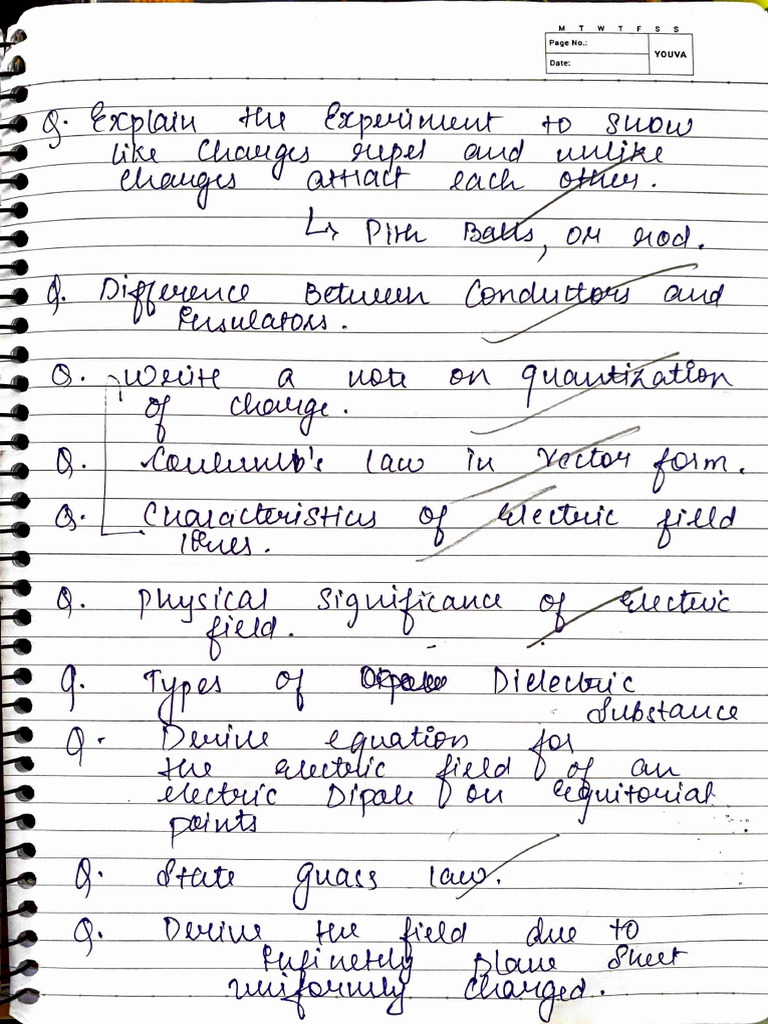 M T W T F S S
Page No.:
YOUVA
Date:
Q. Explain the Experiment to show
like charges repel and unlike
charges attract each other.
↳ Pith Balls, or rod.
Q. Difference Between Conductors and
Insulators.
Q. Write a note on quantization
of charge.
Q. Coulumb's law in vector form.
Q. Characteristics of electric field
lines.
Q. Physical significance of electric
field.
Q. Types of Dielectric
Substance
Q. Derive equation for
the electric field of an
electric Dipole on equitorial
points
Q. State guass law.
Q. Derive the field due to
Infinetely plane sheet
uniformly charged.